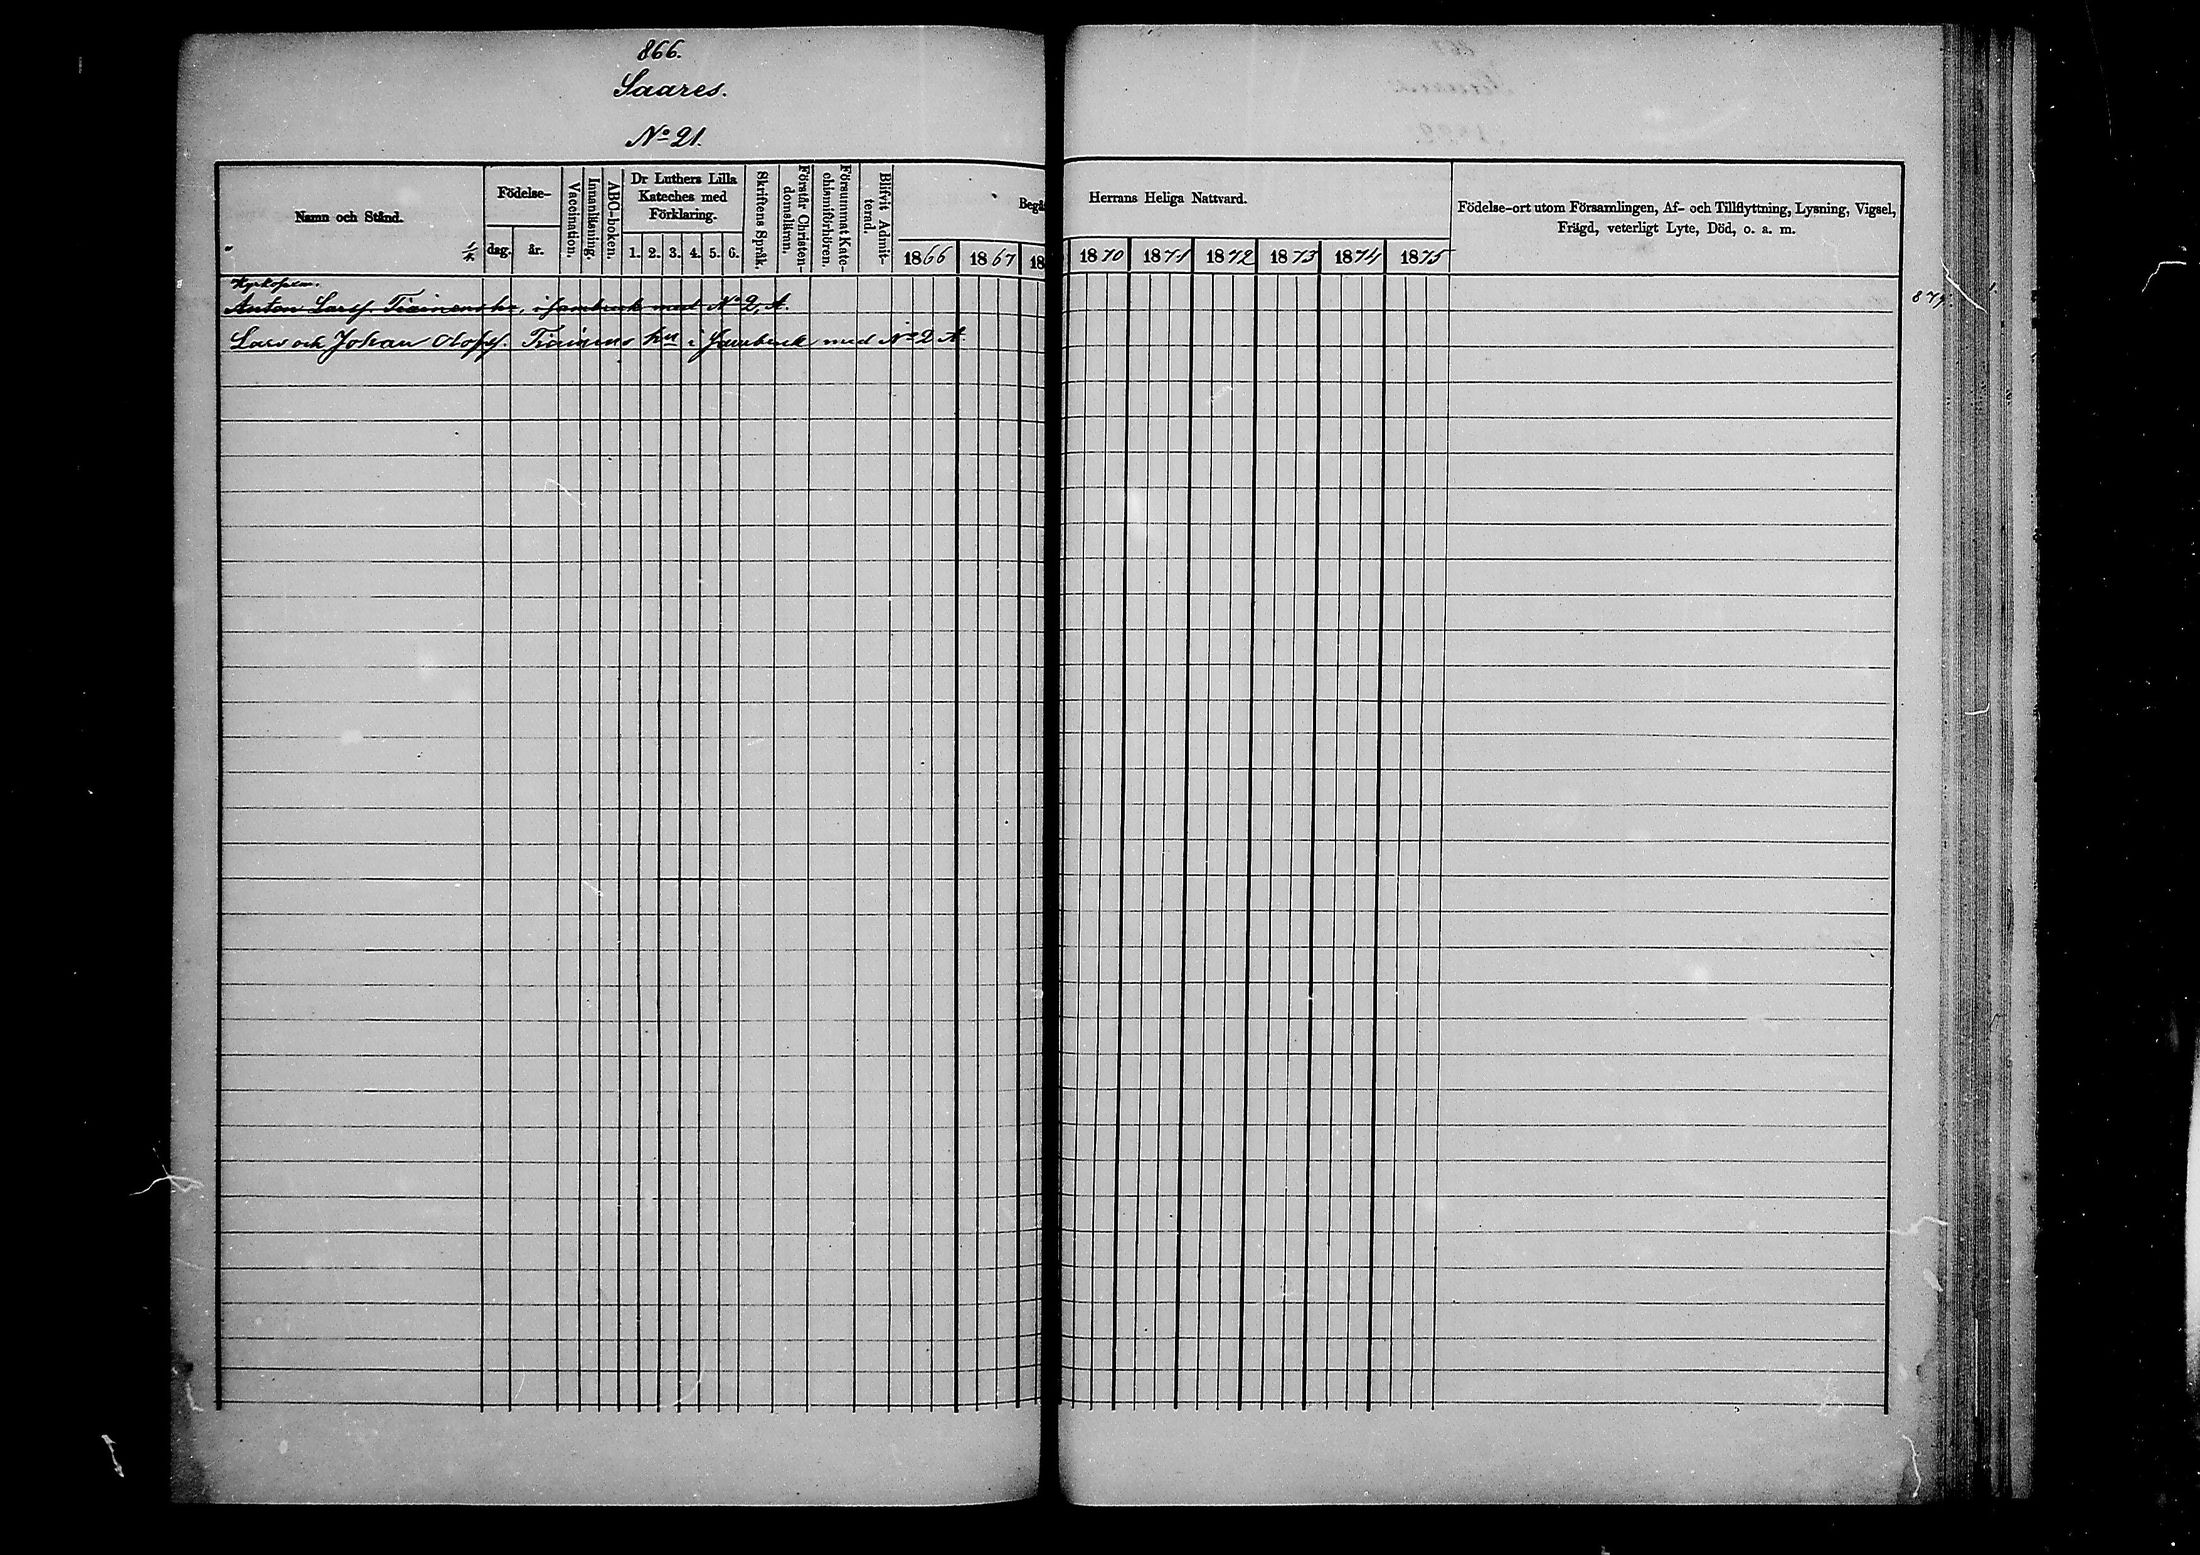 866.
Saares.
No 21.
Namn och Stånd.
1/4
Födelse-
dag.
år.
Vaccination.
Innanläsning.
ABC-boken.
Dr Luthers Lilla
Kateches med
Förklaring.
1. 2. 3. 4. 5. 6.
Skriftens Språk.
Förstår Christen-
domslärän.
Försummat Kate-
chismiförhören.
Blifvit Admit-
terad.
Begå
Herrans Heliga Nattvard.
1866 1867 18
1870 1871 1872 1873 1874 1875
Födelse-ort utom Församlingen, Af- och Tillflyttning, Lysning, Vigsel,
Frägd, veterligt Lyte, Död, o. a. m.
Anton Larsf. i sambruk med No 2, A.
Lars och Johan Olofsf. hn i sambruk med No 2 A.